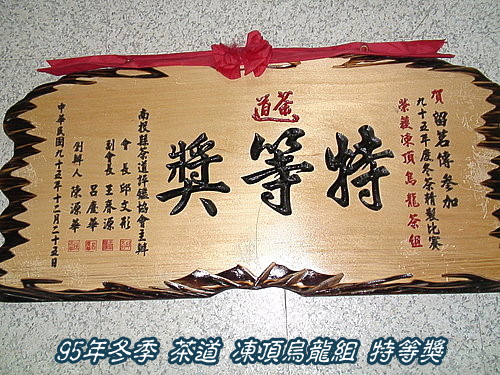 賀留茗傳參加
九十五年度冬茶精製比賽
榮獲凍頂烏龍茶組
茶道
特等獎
南投縣茶道評鑑協會主辦
會長邱文彬
副會長王春源
呂慶華
創辦人陳源華
中華民國九十五年十二月二十五日
95年冬季 茶道 凍頂烏龍組 特等獎